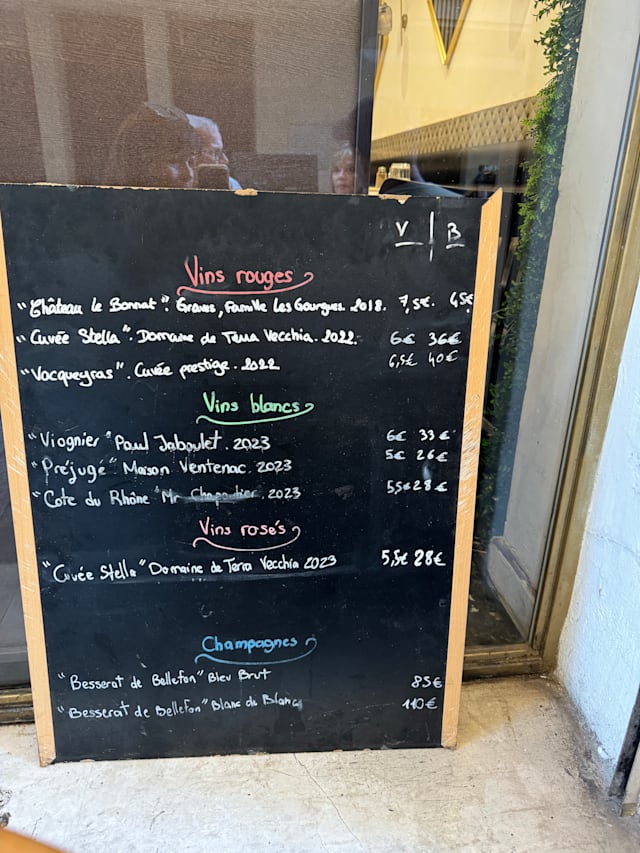 V | B
Vins rouges
"Château le Bonnat". Graves, Famille Les Gourgues. 2018. 7,5€. 45€
"Cuvée Stella". Domaine de Terra Vecchia. 2022. 6€ 36€
"Vacqueyras". Cuvée prestige. 2022 6,5€ 40€
Vins blancs
"Viognier" Paul Jaboulet. 2023 6€ 33€
"Préjugé" Maison Ventenac. 2023 5€ 26€
"Cote du Rhône" Mr Chapoutier. 2023 5,5€ 28€
Vins rosés
"Cuvée Stella" Domaine de Terra Vecchia 2023 5,5€ 28€
Champagnes
"Besserat de Bellefon" Bleu Brut 85€
"Besserat de Bellefon" Blanc de Blancs 110€